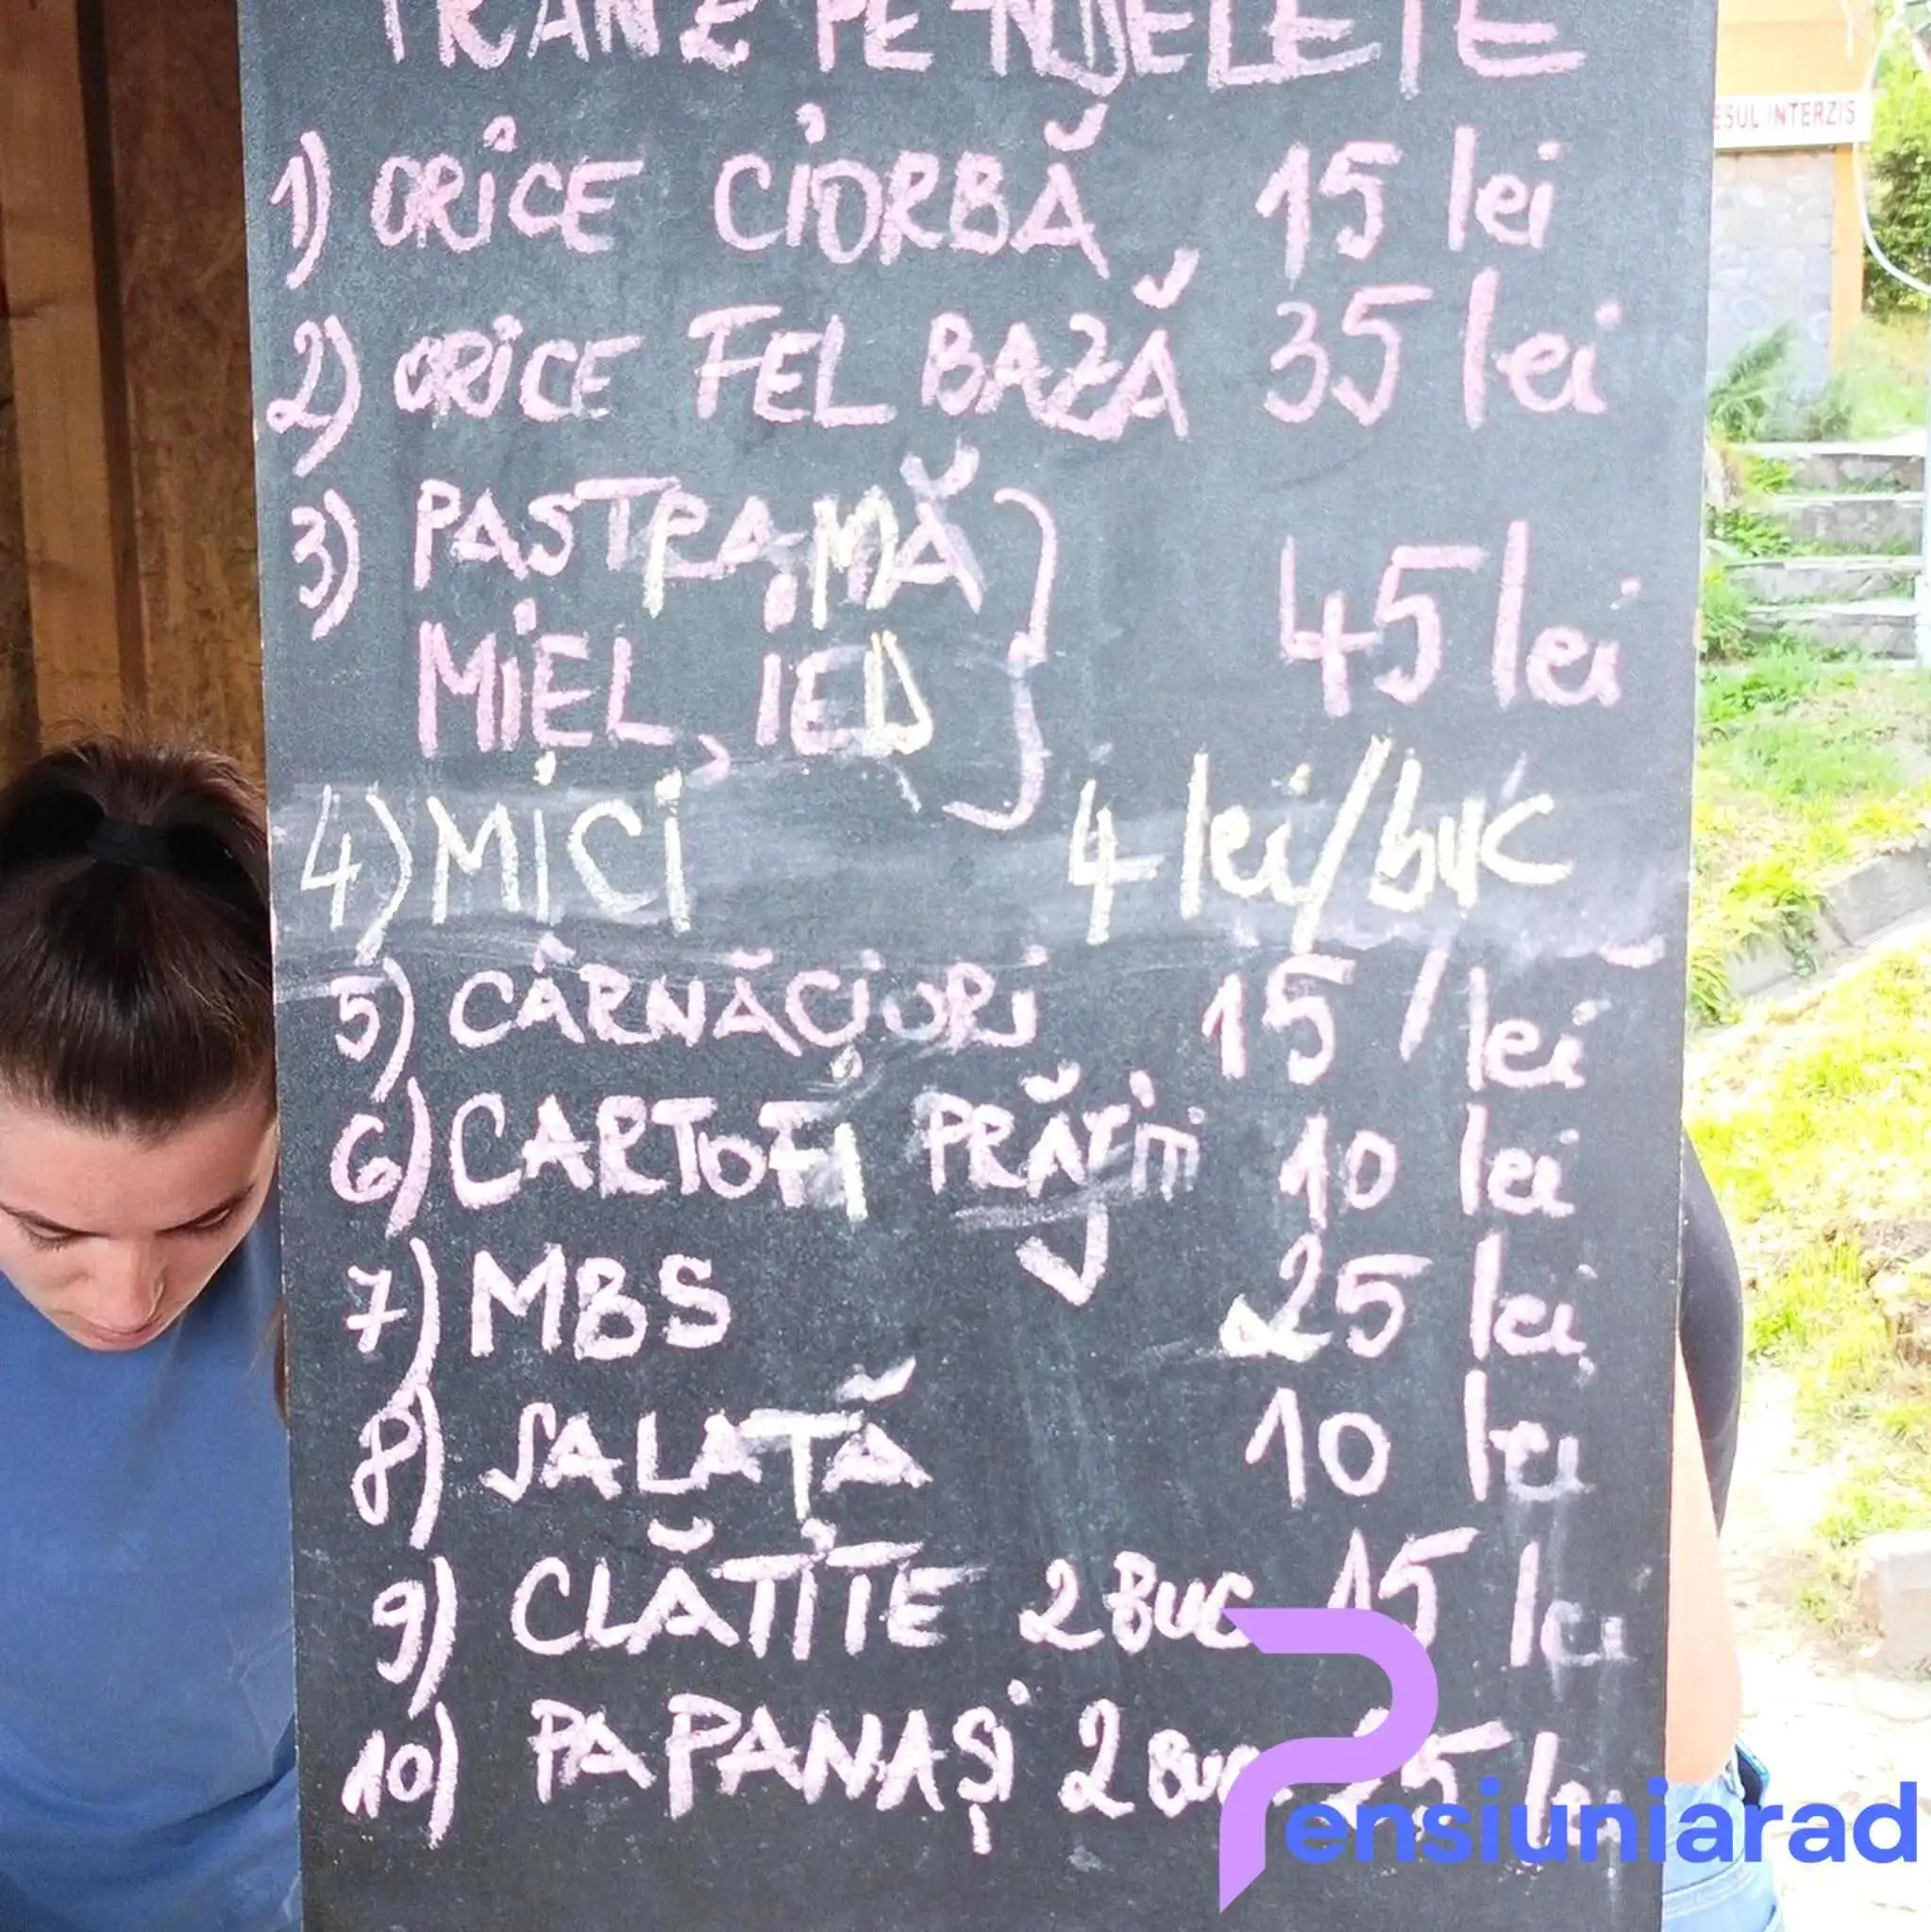 PE
1) ORICE CIORBĂ 15 lei
2) ORICE FEL BAZĂ 35 lei
3) PASTRAMĂ
MIEL, IED } 45 lei
4) MICI 4 lei/buc
5) CÂRNĂCIORI 15 / lei
6) CARTOFI PRĂJIȚI 10 lei
7) MBS 25 lei
8) SALATĂ 10 lei
9) CLĂTITE 2 BUC 15 lei
10) PAPANAȘI 2 BUC lei
ESUL INTERZIS
Pensiuniarad